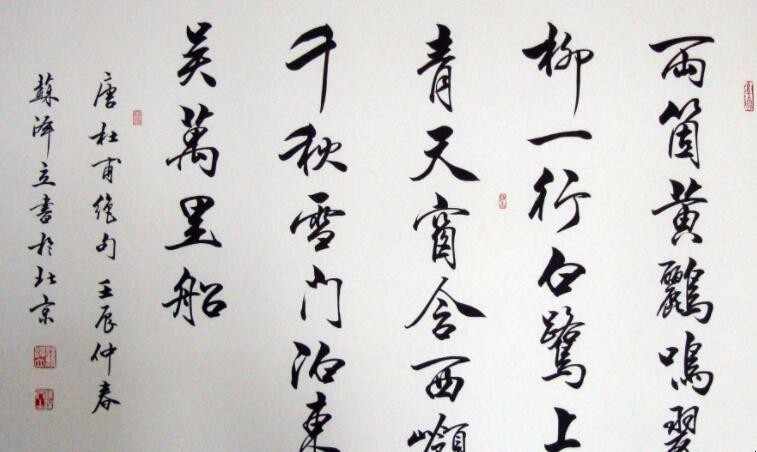 兩箇黃鸝鳴翠
柳一行白鷺上
青天窗含西嶺
千秋雪門泊東
吴萬里船
唐杜甫絶句 壬辰仲春
蘇澤立書於北京